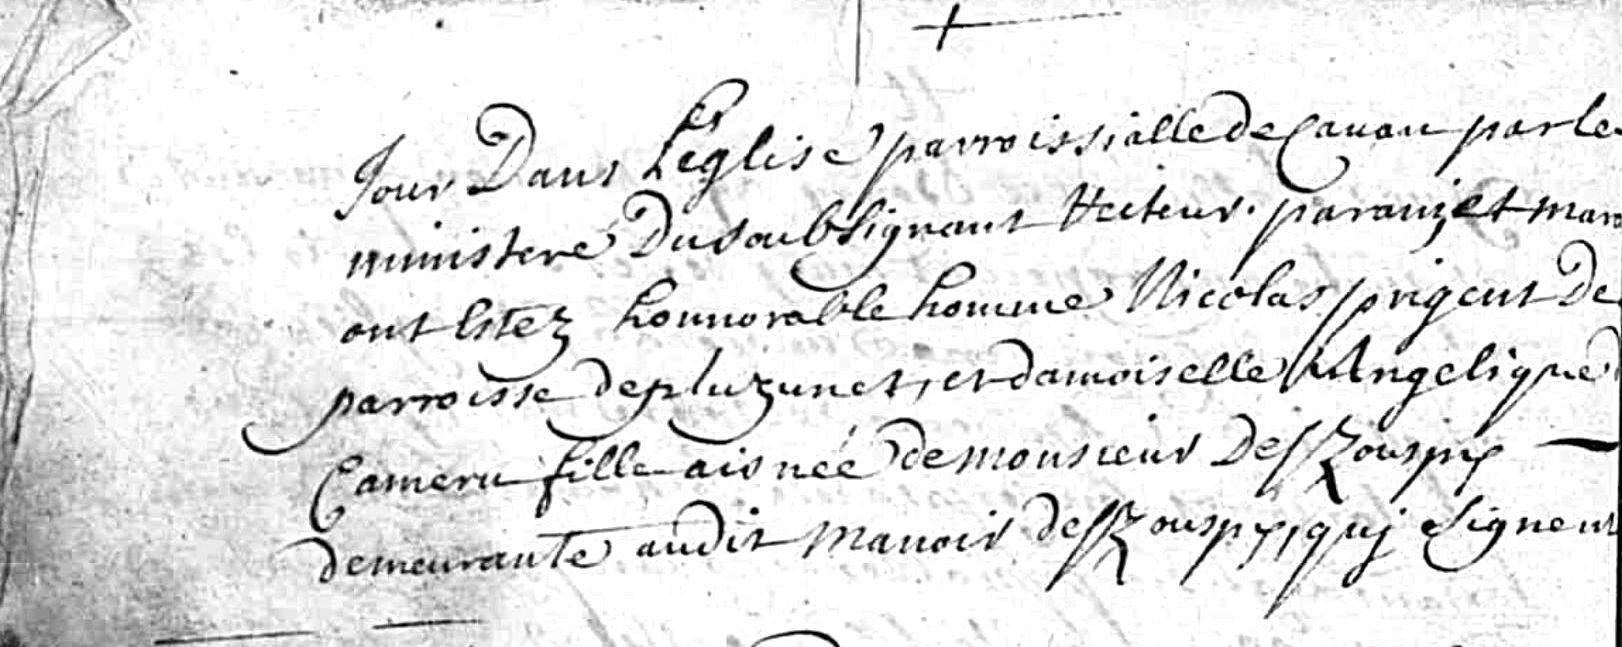 Jour Dans L'eglise parroissialle de Cavan par le
ministere Du soubsignant Recteur. parain et mar
ont Estez honnorable homme Nicolas prigent De
parroisse de pluzunet, et damoiselle Angelique
Cameru fille aisnée de monsieur De
demeurante audit manoir de quj signent